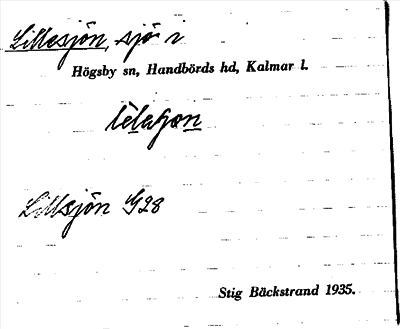 Lillesjön, sjö i
Högsby sn, Handbörds hd, Kalmar l.
Lillsjön G28
Stig Bäckstrand 1935.